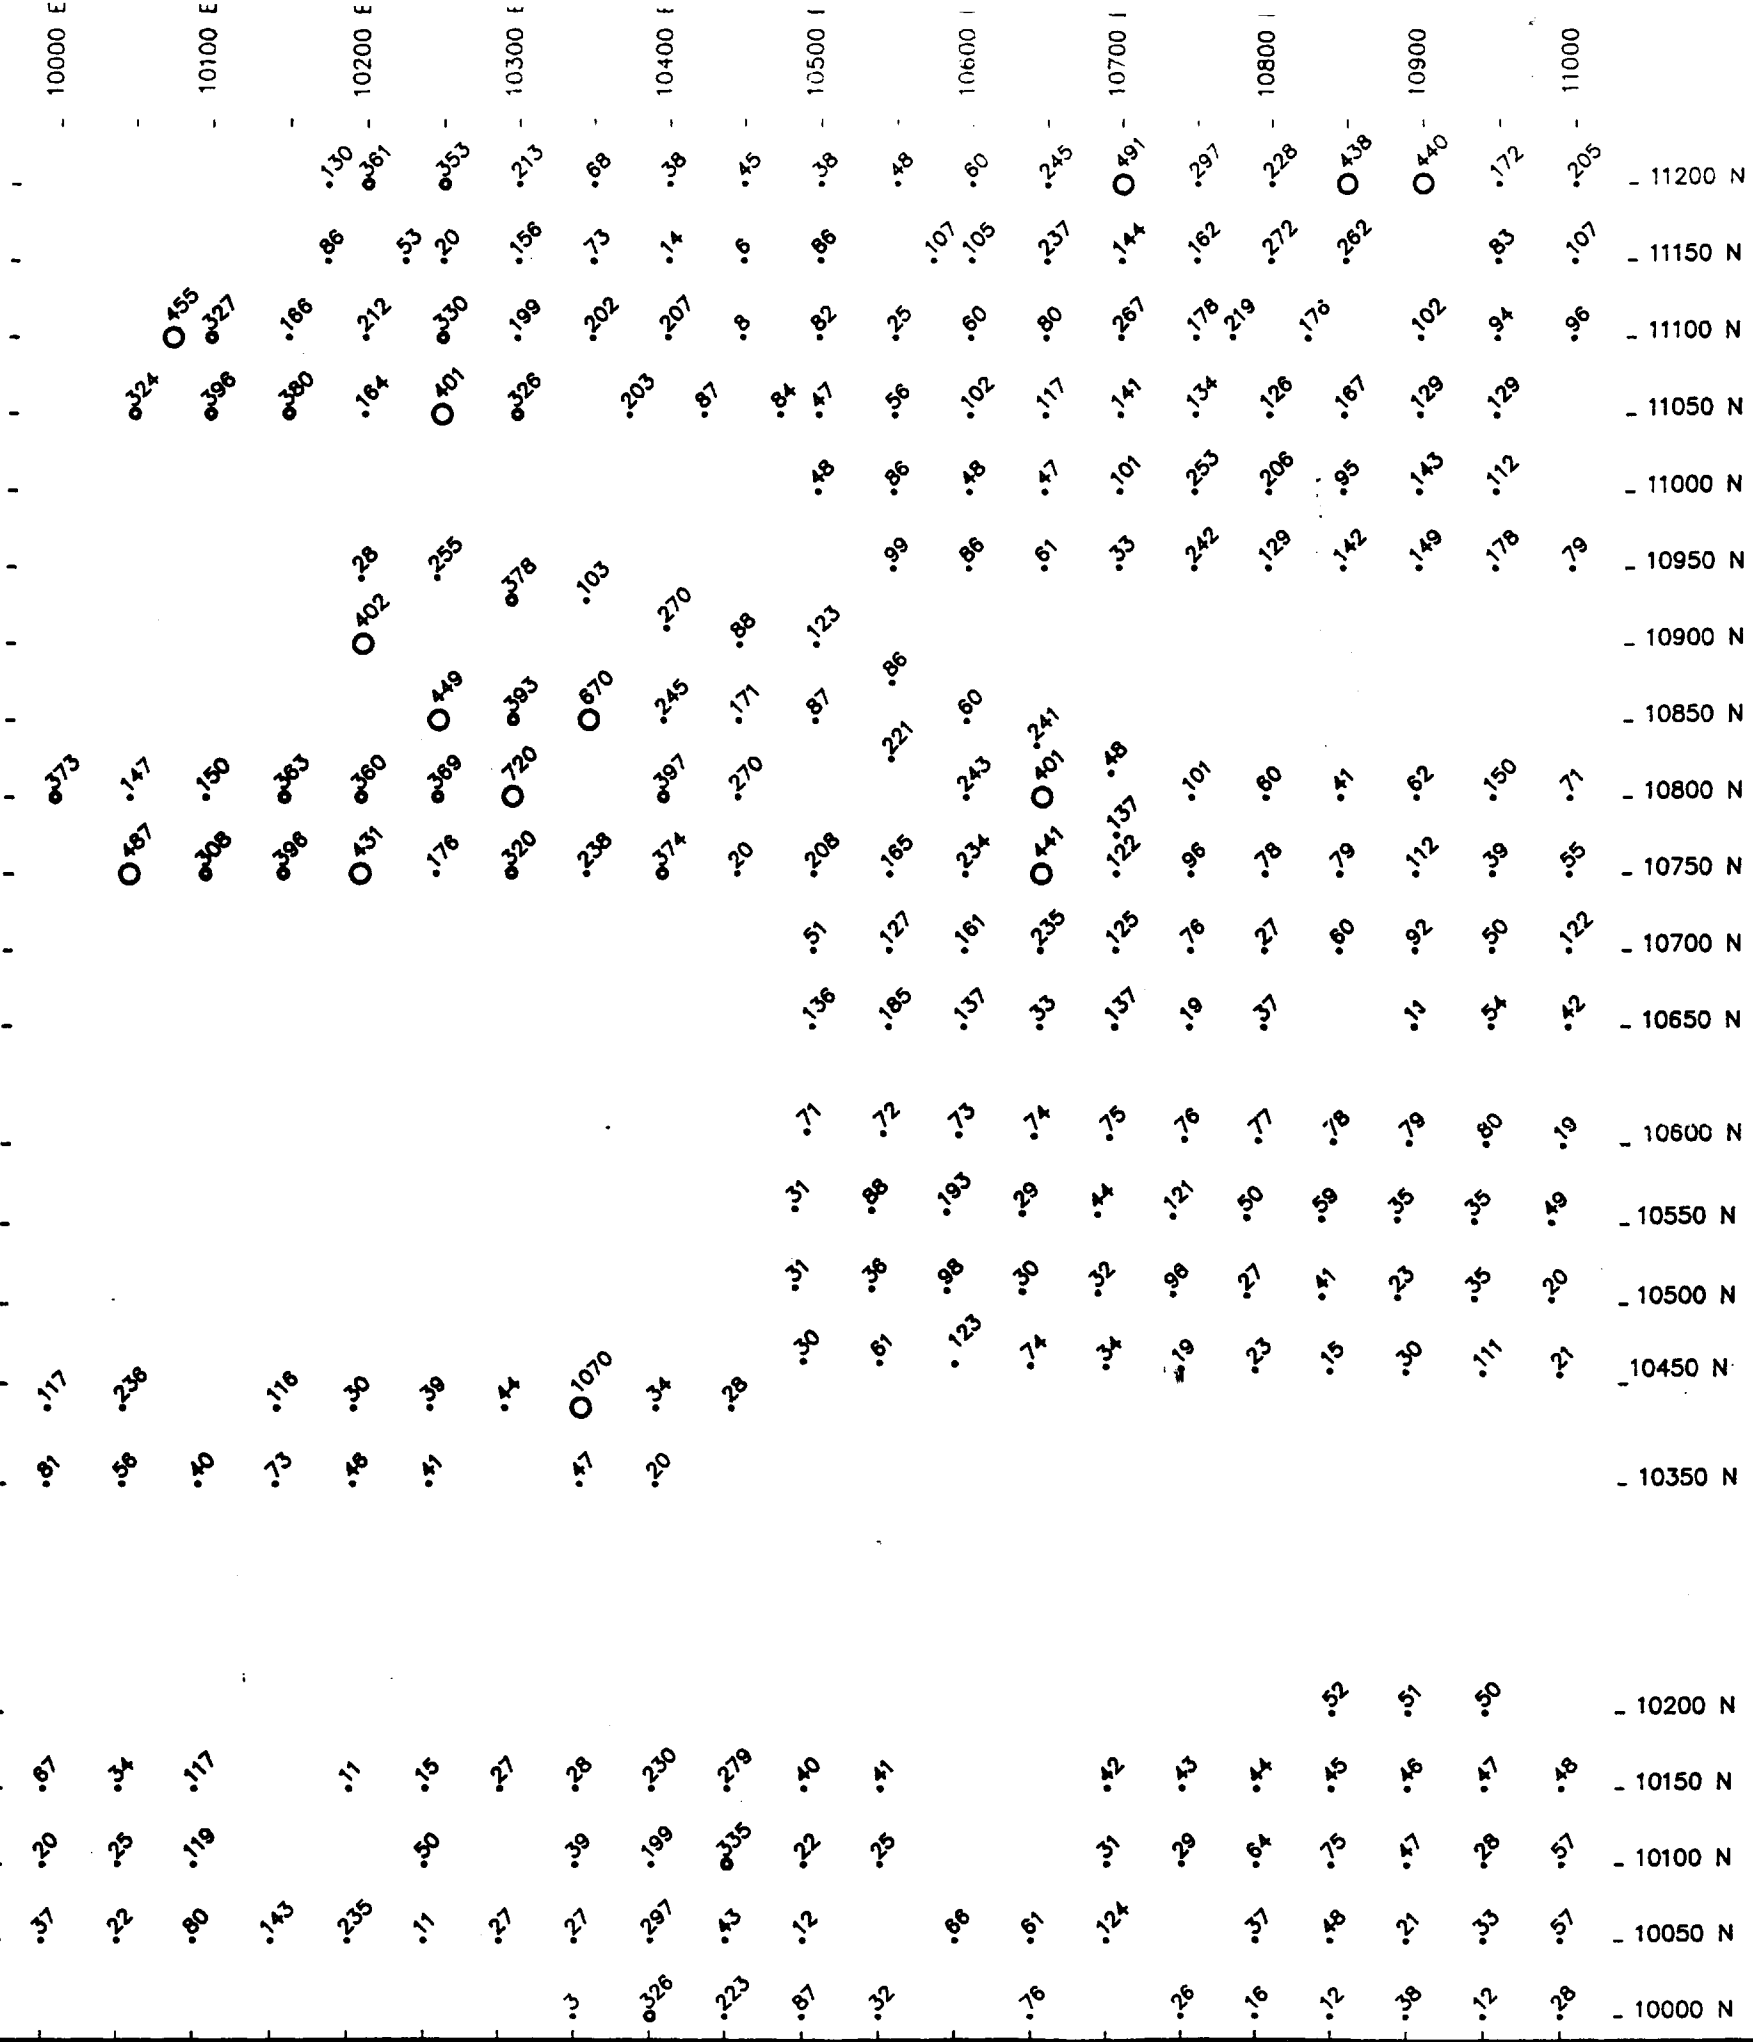 10000 E 10100 E 10200 E 10300 E 10400 E 10500 10600 10700 10800 10900 11000
130 361 353 213 68 38 45 38 48 60 245 491 297 228 438 440 172 205 11200 N
86 53 20 156 73 14 6 86 107 105 237 144 162 272 262 83 107 11150 N
455 327 166 212 330 199 202 207 8 82 25 60 80 267 178 219 176 102 94 96 11100 N
324 396 380 164 401 326 203 87 84 47 56 102 117 141 134 126 167 129 129 11050 N
48 86 48 47 101 253 206 95 143 112 11000 N
28 255 378 103 99 86 61 33 242 129 142 149 178 79 10950 N
402 270 88 123 10900 N
86
449 393 670 245 171 87 60 10850 N
221 241
373 147 150 363 360 369 720 397 270 243 401 48 101 60 41 62 150 71 10800 N
137
487 308 396 431 176 320 238 374 20 208 165 234 441 122 96 78 79 112 39 55 10750 N
51 127 161 235 125 76 27 60 92 50 122 10700 N
136 185 137 33 137 19 37 11 54 42 10650 N
71 72 73 74 75 76 77 78 79 80 19 10600 N
31 88 193 29 44 121 50 59 35 35 49 10550 N
31 36 98 30 32 96 27 41 23 35 20 10500 N
30 61 123 74 34 19 23 15 30 111 21 10450 N
117 236 116 30 39 44 1070 34 28
81 56 40 73 48 41 47 20 10350 N
52 51 50 10200 N
67 34 117 11 15 27 28 230 279 40 41 42 43 44 45 46 47 48 10150 N
20 25 119 50 39 199 335 22 25 31 29 64 75 47 28 57 10100 N
37 22 80 143 235 11 27 27 297 43 12 66 61 124 37 48 21 33 57 10050 N
3 326 223 87 32 76 26 16 12 38 12 28 10000 N